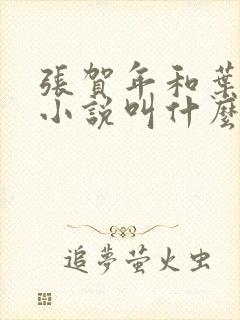 張賀年和葉
小說叫什麼
追夢萤火虫